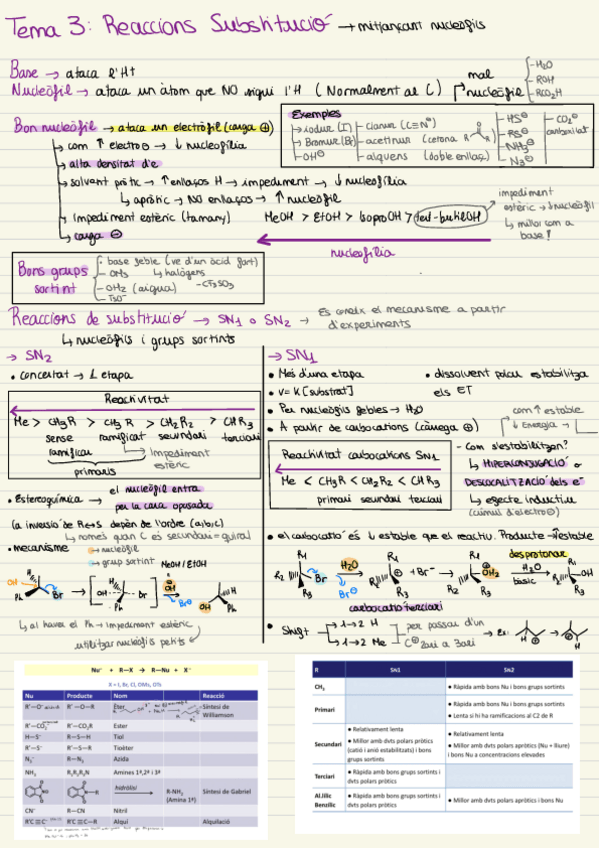 Tema 3: Reaccions Substitució → mitjançant nucleòfils
Base → ataca l'H+
Nucleòfil → ataca un àtom que NO sigui l'H ( Normalment al C )
mal nucleòfil
- H2O
- ROH
- RCO2H
Bon nucleòfil → ataca un electròfil (carga ⊕)
↳ com ↑ electro ⊖ → ↓ nucleofília
↳ alta densitat d'e
↳ solvent pròtic → ↑ enllaços H → impediment → ↓ nucleofília
↳ apròtic → NO enllaços → ↑ nucleòfil
↳ Impediment estèric (tamany) MeOH > EtOH > isoproOH > tert-butilOH
↳ carga ⊖
impediment estèric → ↓ nucleòfil
↳ millor com a base!
nucleofília
Exemples
→ iodur (I⁻)
→ Bromur (Br)
→ OH⊖
- cianur (C≡N⊖)
- acetinur (cetona R R)
- alquens (doble enllaç)
- HS⊖
- RS⊖
- NH2⊖
- N3⊖
- CO2⊖
carboxilat
Bons grups sortint
• base feble (ve d'un àcid fort)
- OMs ↳ halògens
- OH2 (aigua) -CF3SO3
- TsO⁻
Reaccions de substitució → SN1 o SN2 → Es coneix el mecanisme a partir d'experiments
↳ nucleòfils i grups sortints
→ SN2
• concertat → 1 etapa
Reactivitat
Me > CH2R > CH2R > CH2R2 > CHR3
sense ramificar ramificat secundari terciari
primaris
↳ Impediment estèric
• Estereoquímica → el nucleòfil entra per la cara oposada
(a inversió de R↔S depèn de l'ordre (a,b,c)
↳ només quan C és secundari = quiral
• mecanisme
→ nucleòfil
→ grup sortint
MeOH / EtOH
OH H Ph Br → [ H Br Ph ] → OH Br⊖ H OH Ph
↳ al haver el Ph → impediment estèric
utilitzar nucleòfils petits
→ SN1
• Més d'una etapa
• v = K [substrat]
• Per nucleòfils febles → H2O
• A partir de carbocations (càrrega ⊕)
• dissolvent polar estabilitza els ET
com ↑ estable
↓ Energia
Reactivitat carbocations SN1
Me < CH2R < CH2R2 < CHR3
primari secundari terciari
- Com s'estabilitzan?
↳ HIPERCONJUGACIÓ o
DESLOCALITZACIÓ dels e⁻
↳ efecte inductiu
(cúmul d'electro⊖)
• el carbocatió és ↓ estable que el reactiu. Producte → ↑estable
R1 R2 R3 Br → H2O Br⊖ R1 R2 R3 + Br⁻ → R1 R2 R3 OH2 → H2O bàsic R1 R2 R3 OH
desprotonar
carbocatió terciari
• Shift
→ 1→2 H
→ 1→2 Me
per passar d'un C⊕ 2ari a 3ari → Ex:
Nu⁻ + R—X → R—Nu + X⁻
X = I, Br, Cl, OMs, OTs
Nu Producte Nom Reacció
R'—O⁻ R'—O—R Éter Síntesi de Williamson
R'—CO2⁻ R'—CO2R Ester
H—S⁻ R—S—H Tiol
R'—S⁻ R'—S—R Tioèter
N3⁻ R—N3 Azida
NH3 R1R2R3N Amines 1ª,2ª i 3ª
hidròlisi R-NH2 (Amina 1ª) Síntesi de Gabriel
CN⁻ R—CN Nitril
R'C≡C⁻ R'C≡C—R Alquí Alquilació
R SN1 SN2
CH3 ● Ràpida amb bons Nu i bons grups sortints
Primari ● Ràpida amb bons Nu i bons grups sortints
● Lenta si hi ha ramificacions al C2 de R
Secundari ● Relativament lenta
● Millor amb dvts polars pròtics (catió i anió estabilitzats) i bons grups sortints
● Relativament lenta
● Millor amb dvts polars apròtics (Nu + lliure) i bons Nu a concentracions elevades
Terciari ● Ràpida amb bons grups sortints i dvts polars pròtics
Al.lilic Benzílic ● Ràpida amb bons grups sortints i dvts polars pròtics
● Millor amb dvts polars apròtics i bons Nu